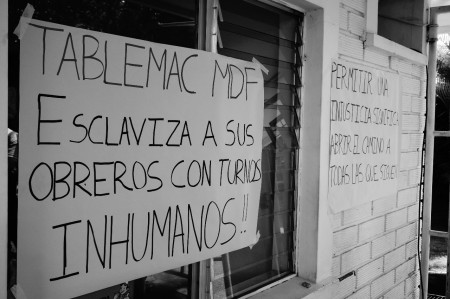 TABLEMAC MDF
ESCLAVIZA A SUS
OBREROS CON TURNOS
INHUMANOS!!
PERMITIR UNA
INJUSTICIA SIGNIFICA
ABRIR EL CAMINO A
TODAS LAS QUE SIGUEN